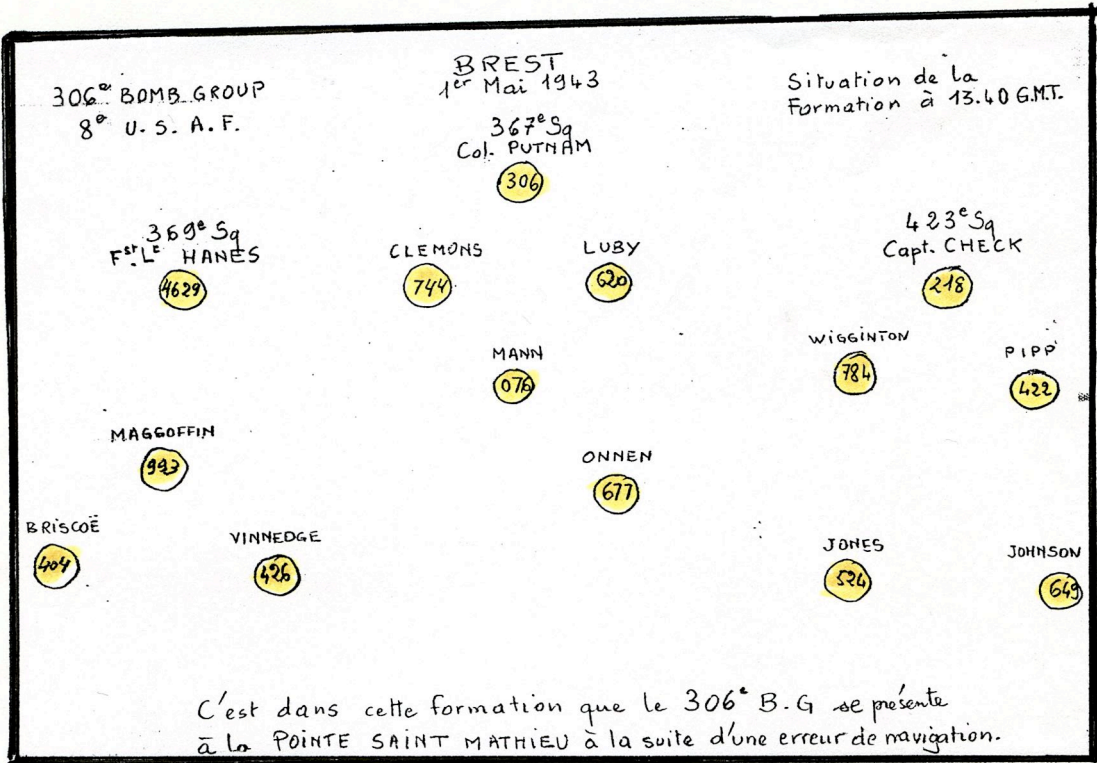 306e BOMB. GROUP
8e U.S.A.F.
BREST
1er Mai 1943
Situation de la
Formation à 13.40 G.M.T.
367e Sq
Col. PUTNAM
306
369e Sq
Fst. Lt HANES
4629
CLEMONS
744
LUBY
620
423e Sq
Capt. CHECK
218
MANN
076
WIGGINTON
784
PIPP
422
MAGGOFFIN
993
ONNEN
677
BRISCOË
404
VINNEDGE
426
JONES
524
JOHNSON
649
C'est dans cette formation que le 306e B.G se présente
à la POINTE SAINT MATHIEU à la suite d'une erreur de navigation.